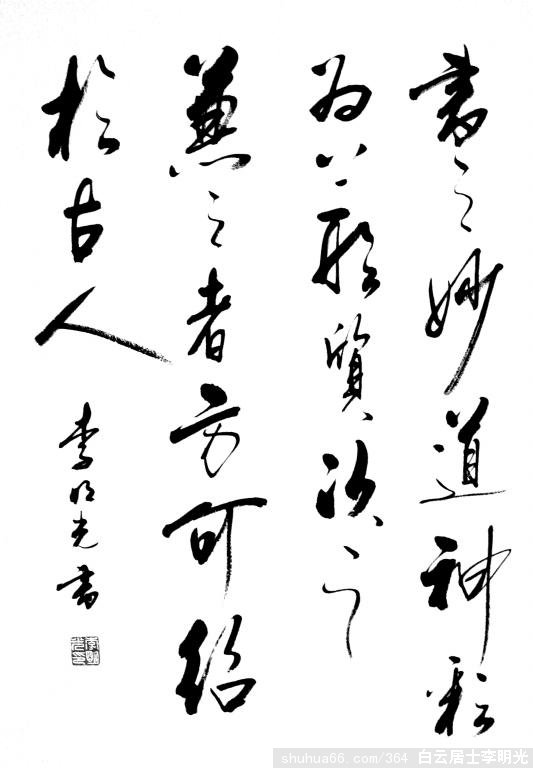 書之妙道神彩
為上形質次之
兼之者方可紹
於古人
李明光書
shuhua66.com/364 白云居士李明光